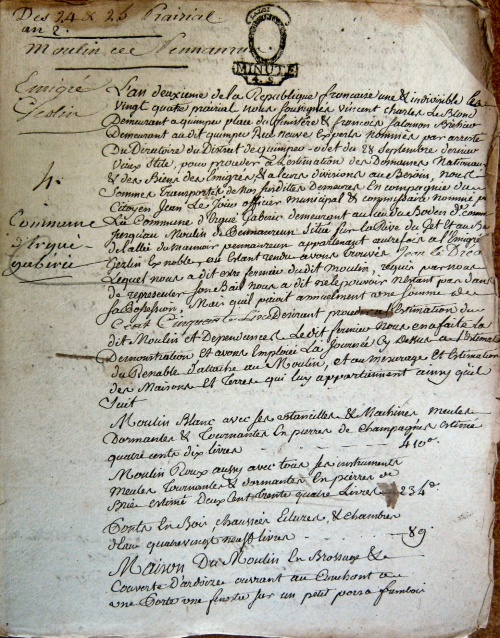 Des 24 & 25 Prairial
an 2.
Moulin de Pennanrun
MINUTE
4. S
Emigré
Geslin
4.
Commune
d'Ergué
gabéric
L'an deuxieme de la Republique francoise une & indivisible les
vingt quatre prairial nous soussignés Vincent Charles Le Blond
Demeurant a quimper place du finistère & francois Salomon Brehier
Demeurant audit quimper Rue neuve Experts nommés par arreté
Du Directoire du District de quimper-odet du 28 Septembre dernier
Vieux Stile, pour proceder a l'estimation des Domaines Nationaux
& des Biens des Emigrés & a leurs divisions au Besoin, nous
Sommes Transportés de nos susdites demeures En compagnie du
Citoyen Jean Le Jour officier municipal & commissaire nommé par
La Commune d'Ergué Gabéric demeurant au lieu du Boden d'icelle
jusqu'au Moulin de Pennanrun Situé sur la Rive du Jet Et au Bout
de l'allée du manoir pennanrun appartenant autrefois a l'Emigré
Geslin Ex noble, ou Etant rendu avons trouvés Jean Le Dréau
Lequel nous a dit estre fermier dudit Moulin, requis par nous
de representer son Bail nous a dit ne le pouvoir n'étant pas dans
sa Possession, Mais qu'il paioit annuelement une somme de
Cent Cinquante Livres Desirant proceder a l'Estimation du
dit Moulin et Dependances Ledit fermier nous en a faite la
Demonstration et avons Emploiée La journée Cy Dessus a l'Estimation
du Renable d'attache au Moulin, et au mesurage et Estimation
des Maisons et Terres qui luy appartiennent ainsy qu'il
Suit
Moulin Blanc avec ses ustancilles & Machines meules
Dormantes & Tournantes En pierres de champagnes estimé
quatre cents dix livres 410#.
Moulin Roux aussy avec tous ses instruments
Meules Tournantes & dormantes En pierres de
Brie estimé Deux Cent trente quatre Livres 234#.
Ponts En Bois Chaussées Ecluses & chambres
d'eau quatre vingt neuf livres 89#
Maison Du Moulin En Brossage &
Couverte D'ardoise ouvrant au Couchant a
une Porte une fenetre sur un petit parc a